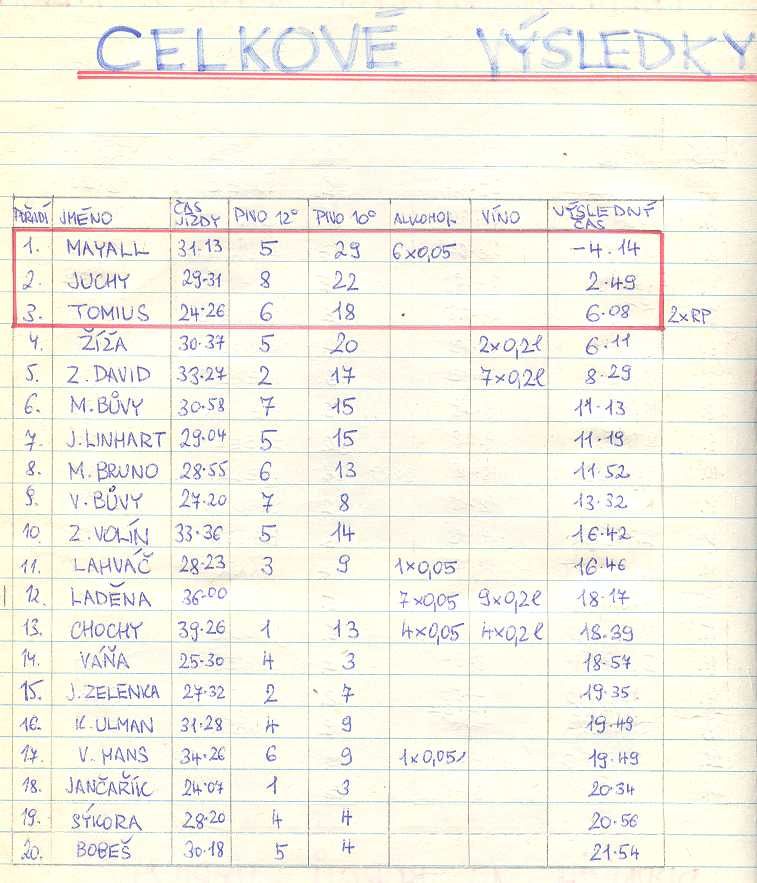 CELKOVÉ VÝSLEDKY
POŘADÍ JMÉNO ČAS JÍZDY PIVO 12° PIVO 10° ALKOHOL VÍNO VÝSLEDNÝ ČAS
1. MAYALL 31.13 5 29 6x0,05 -4.14
2. JUCHY 29.31 8 22 2.49
3. TOMIUS 24.26 6 18 6.08 2xRP
4. ŽÍŽA 30.37 5 20 2x0,2l 6.11
5. Z. DAVID 33.27 2 17 7x0,2l 8.29
6. M. BŮVY 30.58 7 15 11.13
7. J. LINHART 29.04 5 15 11.19
8. M. BRUNO 28.55 6 13 11.52
9. V. BŮVY 27.20 7 8 13.32
10. Z. VOLÍN 33.36 5 14 16.42
11. LAHVÁČ 28.23 3 9 1x0,05 16.46
12. LADĚNA 36.00 7x0,05 9x0,2l 18.17
13. CHOCHY 39.26 1 13 4x0,05 4x0,2l 18.39
14. VÁŇA 25.30 4 3 18.57
15. J. ZELENKA 27.32 2 7 19.35
16. K. ULMAN 31.28 4 9 19.49
17. V. HANS 34.26 6 9 1x0,05 19.49
18. JANČAŘÍK 24.07 1 3 20.34
19. SÝKORA 28.20 4 4 20.56
20. BOBEŠ 30.18 5 4 21.54